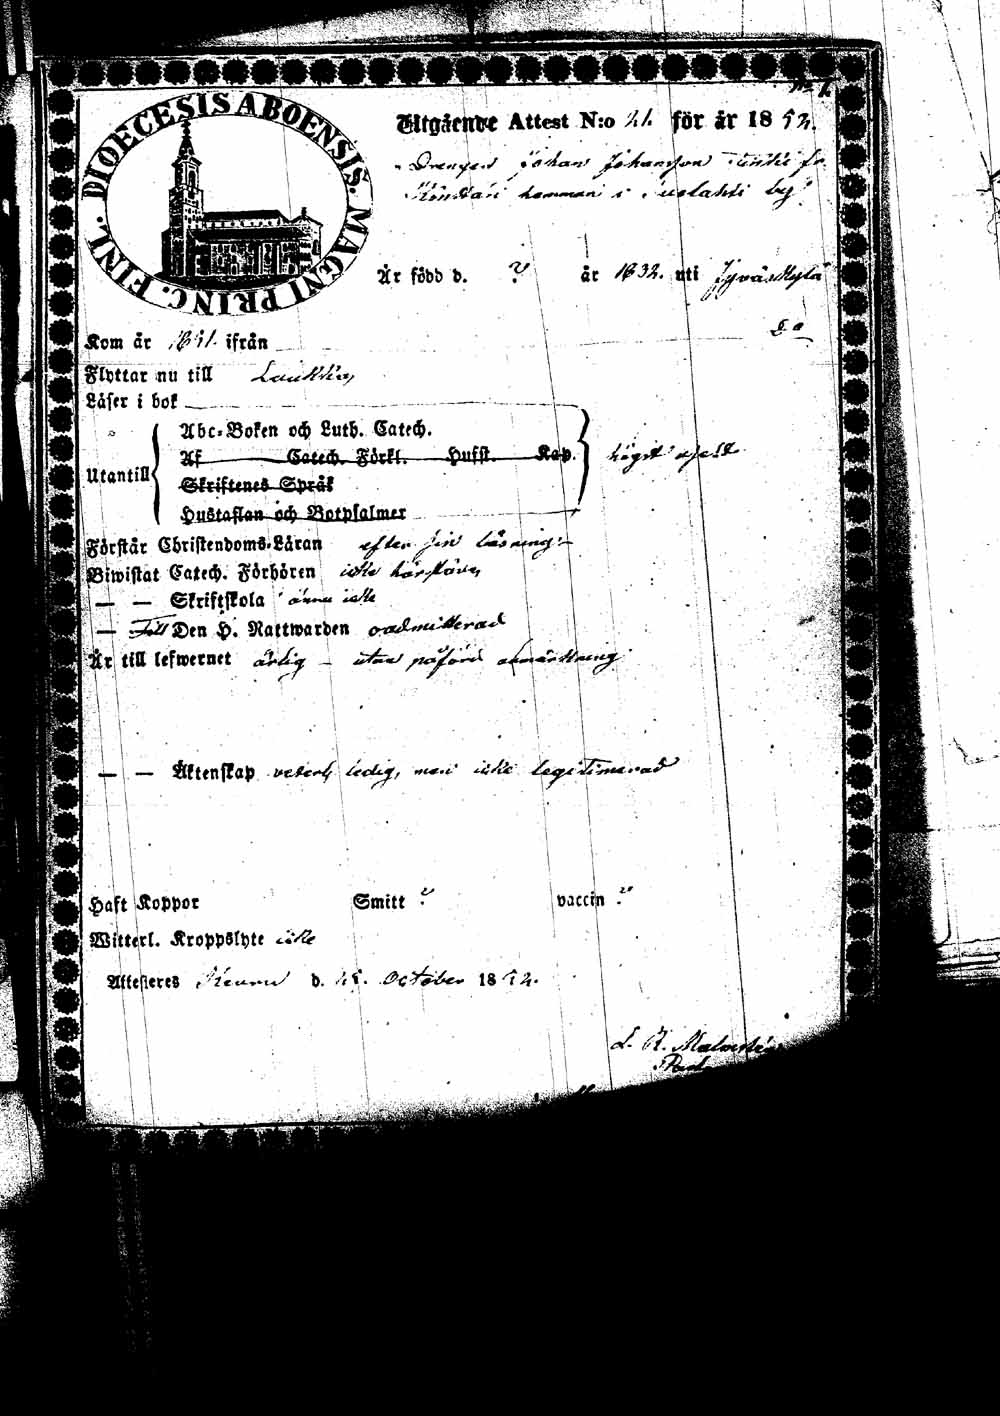 No 1.
DIOECESIS ABOENSIS. MAGNI PRINC. FINL.
Utgående Attest N:o 21. för år 1852.
Drengen Johan Johansson från
hemman i by
Är född d. ? år 1832. uti Jyväskylä
Kom år 1851. ifrån Do
Flyttar nu till Laukka
Läser i bok
Utantill
Abc-Boken och Luth. Catech.
Af Catech. Förkl. Hufst. Kap.
högst
Skriftenes Språk
Hustaflan och Botpsalmer
Förstår Christendoms-Läran efter sin läsning
Biwistat Catech. Förhören icke härstädes
— — Skriftskola ännu icke
— Till Den H. Nattwarden oadmitterad
Är till lefwernet ärlig – utan påförd anmärkning
— — Äktenskap veterl. ledig, men icke legitimerad
Haft Koppor Smitt ? vaccin ?
Witterl. Kroppslyte icke
Attesteres Keuru d. 25. October 1852.